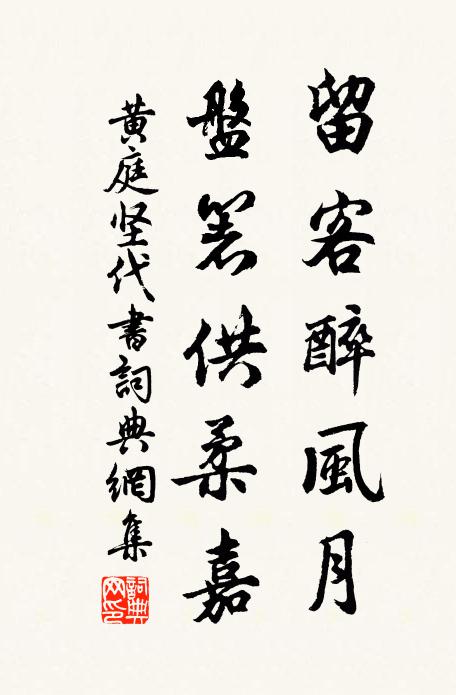 留客醉風月
盤箸供柔嘉
黄庭坚代書詞典網集
詞典網印